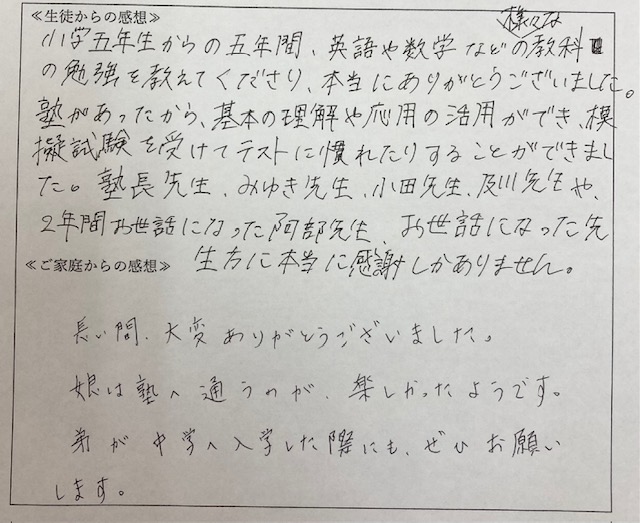 ≪生徒からの感想≫
小学五年生からの五年間、英語や数学などの様々な教科
の勉強を教えてくださり、本当にありがとうございました。
塾があったから、基本の理解や応用の活用ができ、模
擬試験を受けてテストに慣れたりすることができまし
た。塾長先生、みゆき先生、小田先生、及川先生や、
2年間お世話になった阿部先生、お世話になった先
生方に本当に感謝しかありません。
≪ご家庭からの感想≫
長い間、大変ありがとうございました。
娘は塾へ通うのが、楽しかったようです。
弟が中学へ入学した際にも、ぜひお願い
します。